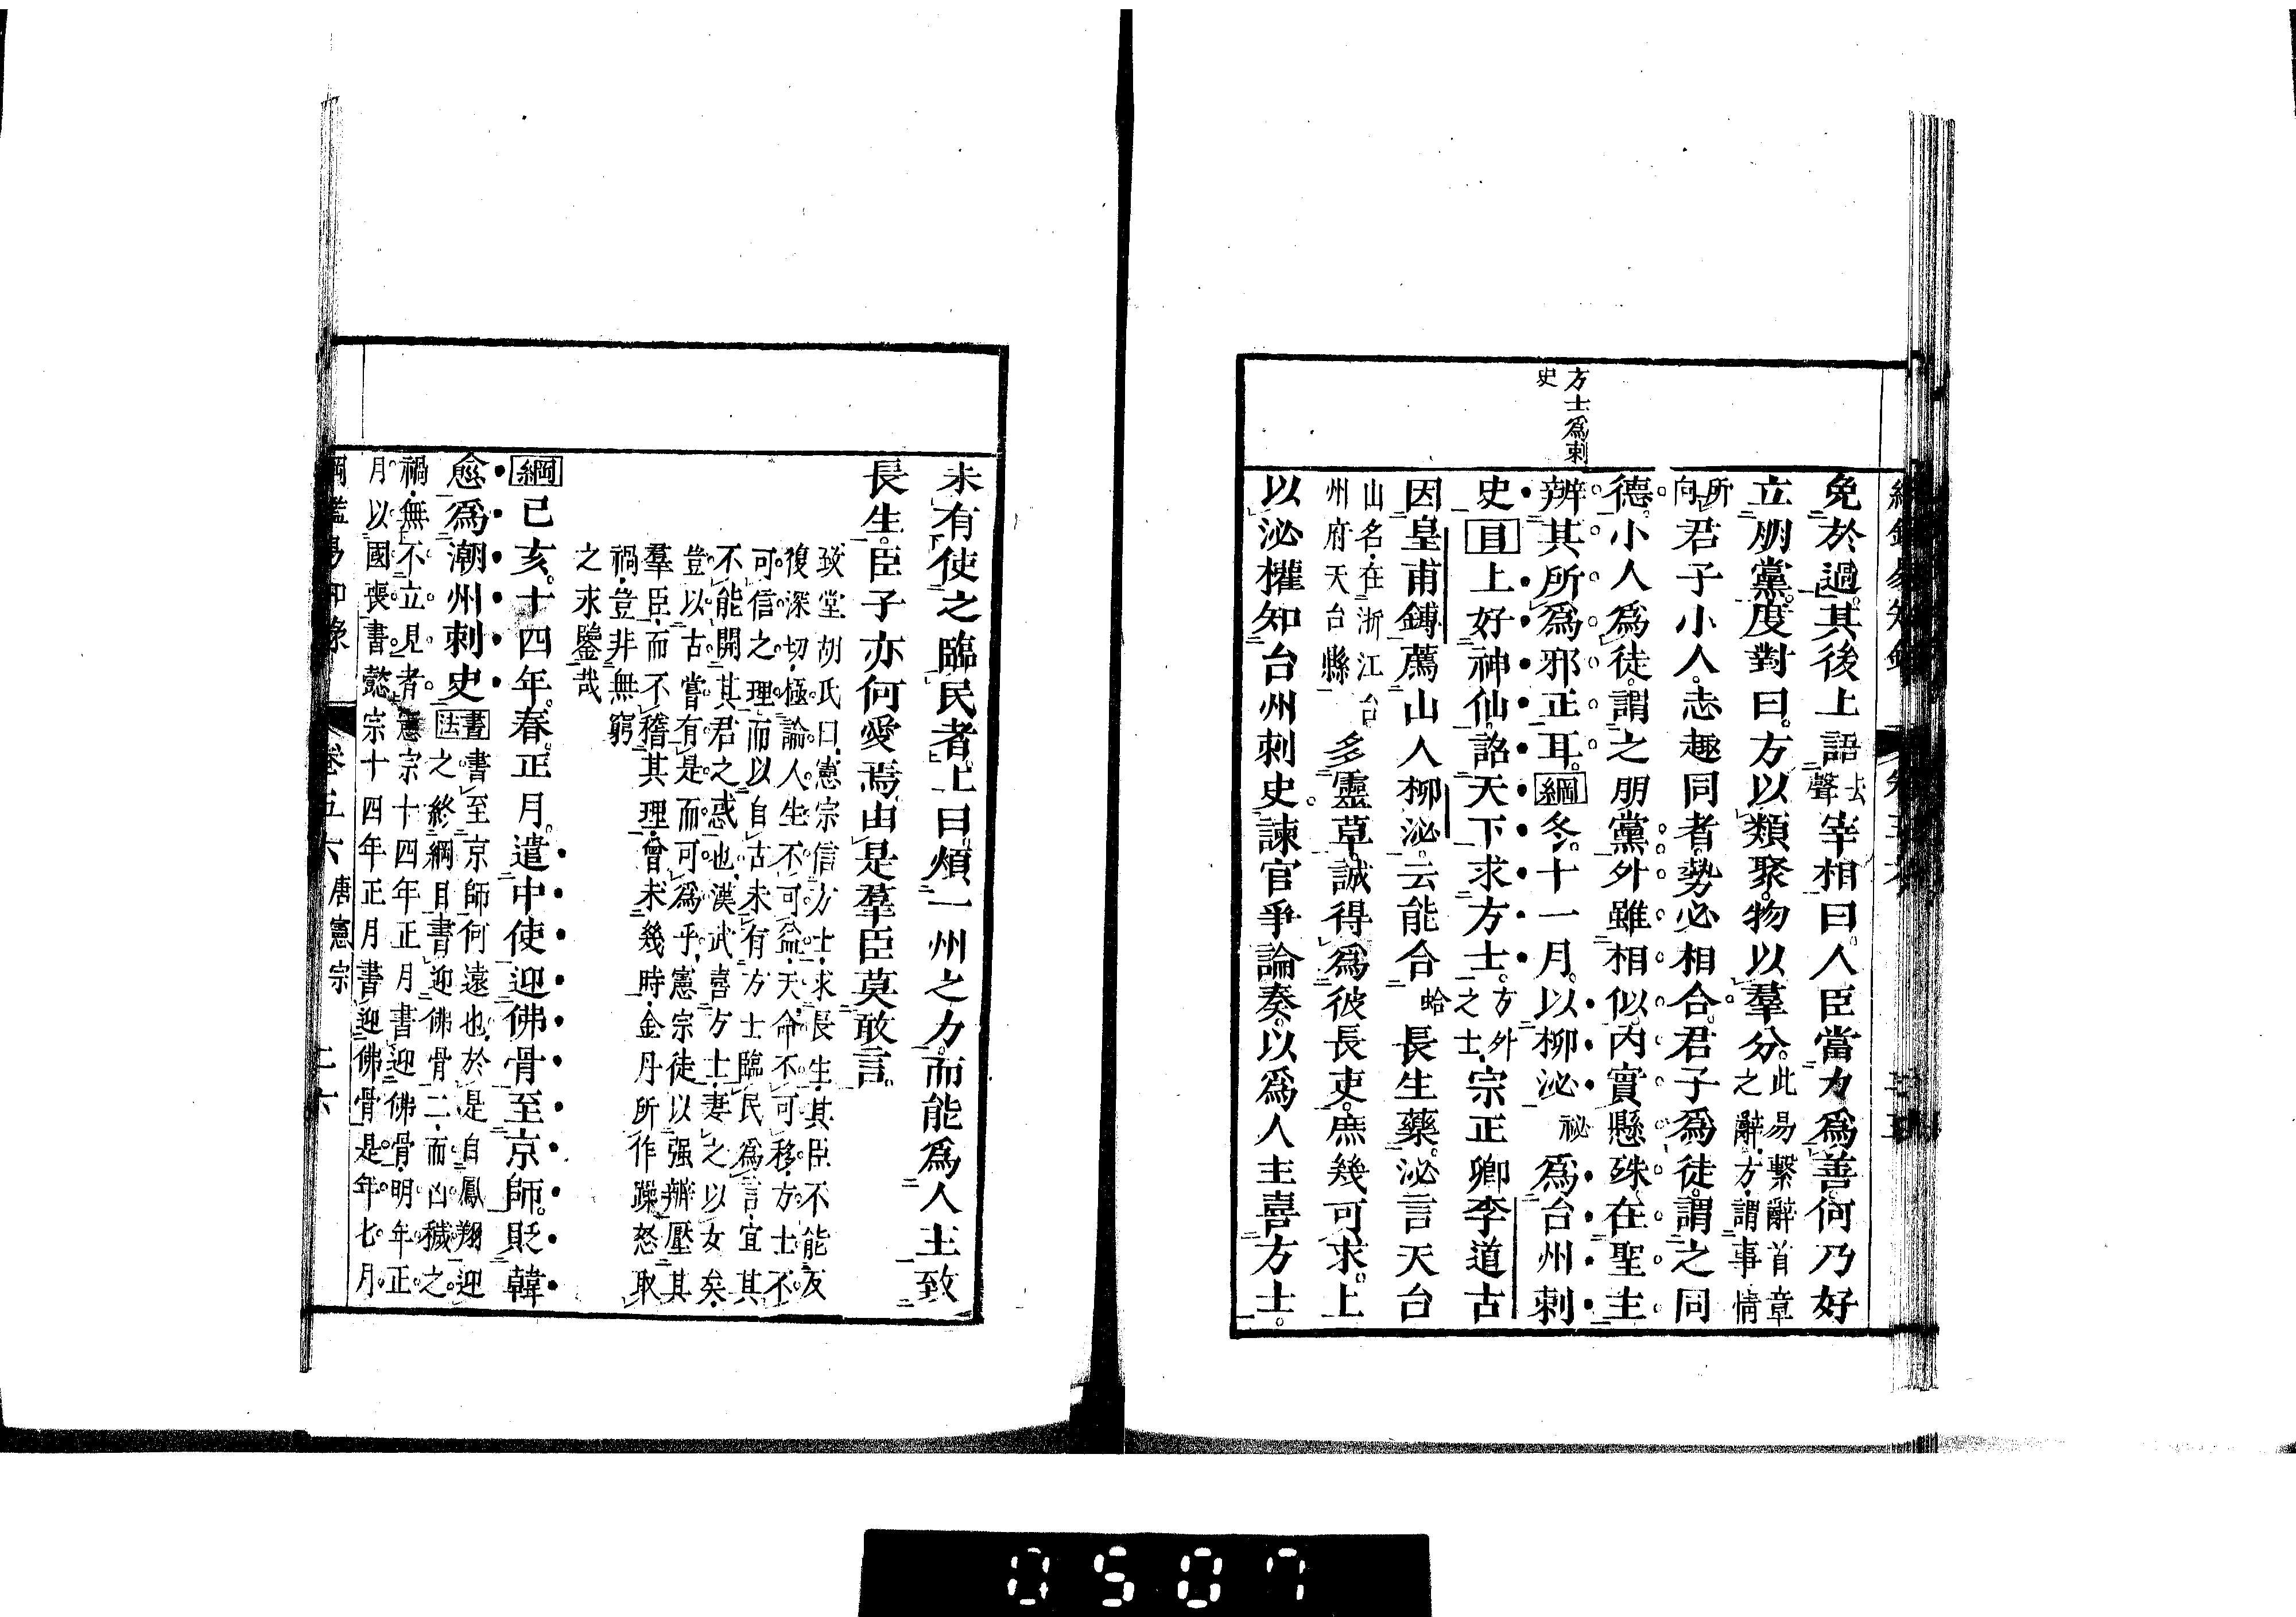 方士爲刺
史
免於過。其後上語去聲宰相曰。人臣當力爲善。何乃好
立朋黨。度對曰。方以類聚。物以羣分。此易繫辭首章之辭。方、謂事情
所向君子小人。志趣同者。勢必相合。君子爲徒。謂之同
德。小人爲徒。謂之朋黨。外雖相似。內實懸殊。在聖主
辨其所爲邪正耳。綱冬。十一月。以柳泌祕爲台州刺
史目上好神仙。詔天下求方士。方外之士。宗正卿李道古
因皇甫鎛薦山人柳泌。云能合蛤長生藥。泌言天台
山名。在浙江台州府天台縣多靈草。誠得爲彼長吏。庶幾可求。上
以泌權知台州刺史。諫官爭論奏。以爲人主喜方士。
未有使之臨民者。上曰。煩一州之力。而能爲人主致
長生。臣子亦何愛焉。由是羣臣莫敢言。
致堂胡氏曰、憲宗信方士、求長生、其臣不能反
復深切、極論人生不可益、天命不可移、方士不
可信之理、而以自古未有方士臨民爲言、宜其
不能開其君之惑也、漢武喜方士、妻之以女矣、
豈以古嘗有是而可爲乎、憲宗徒以强辯壓其
羣臣、而不稽其理、曾未幾時、金丹所作躁怒取
禍、豈非無窮
之求鑒哉
綱己亥。十四年。春。正月。遣中使迎佛骨至京師。貶韓
愈爲潮州刺史書法書至京師何遠也、於是自鳳翔迎之、終綱目書迎佛骨二、而凶穢之
禍、無不立見者、憲宗十四年正月書迎佛骨、明年正
月以國喪書、懿宗十四年正月書迎佛骨、是年七月
綱鑑易知錄 卷五六 唐憲宗 二六